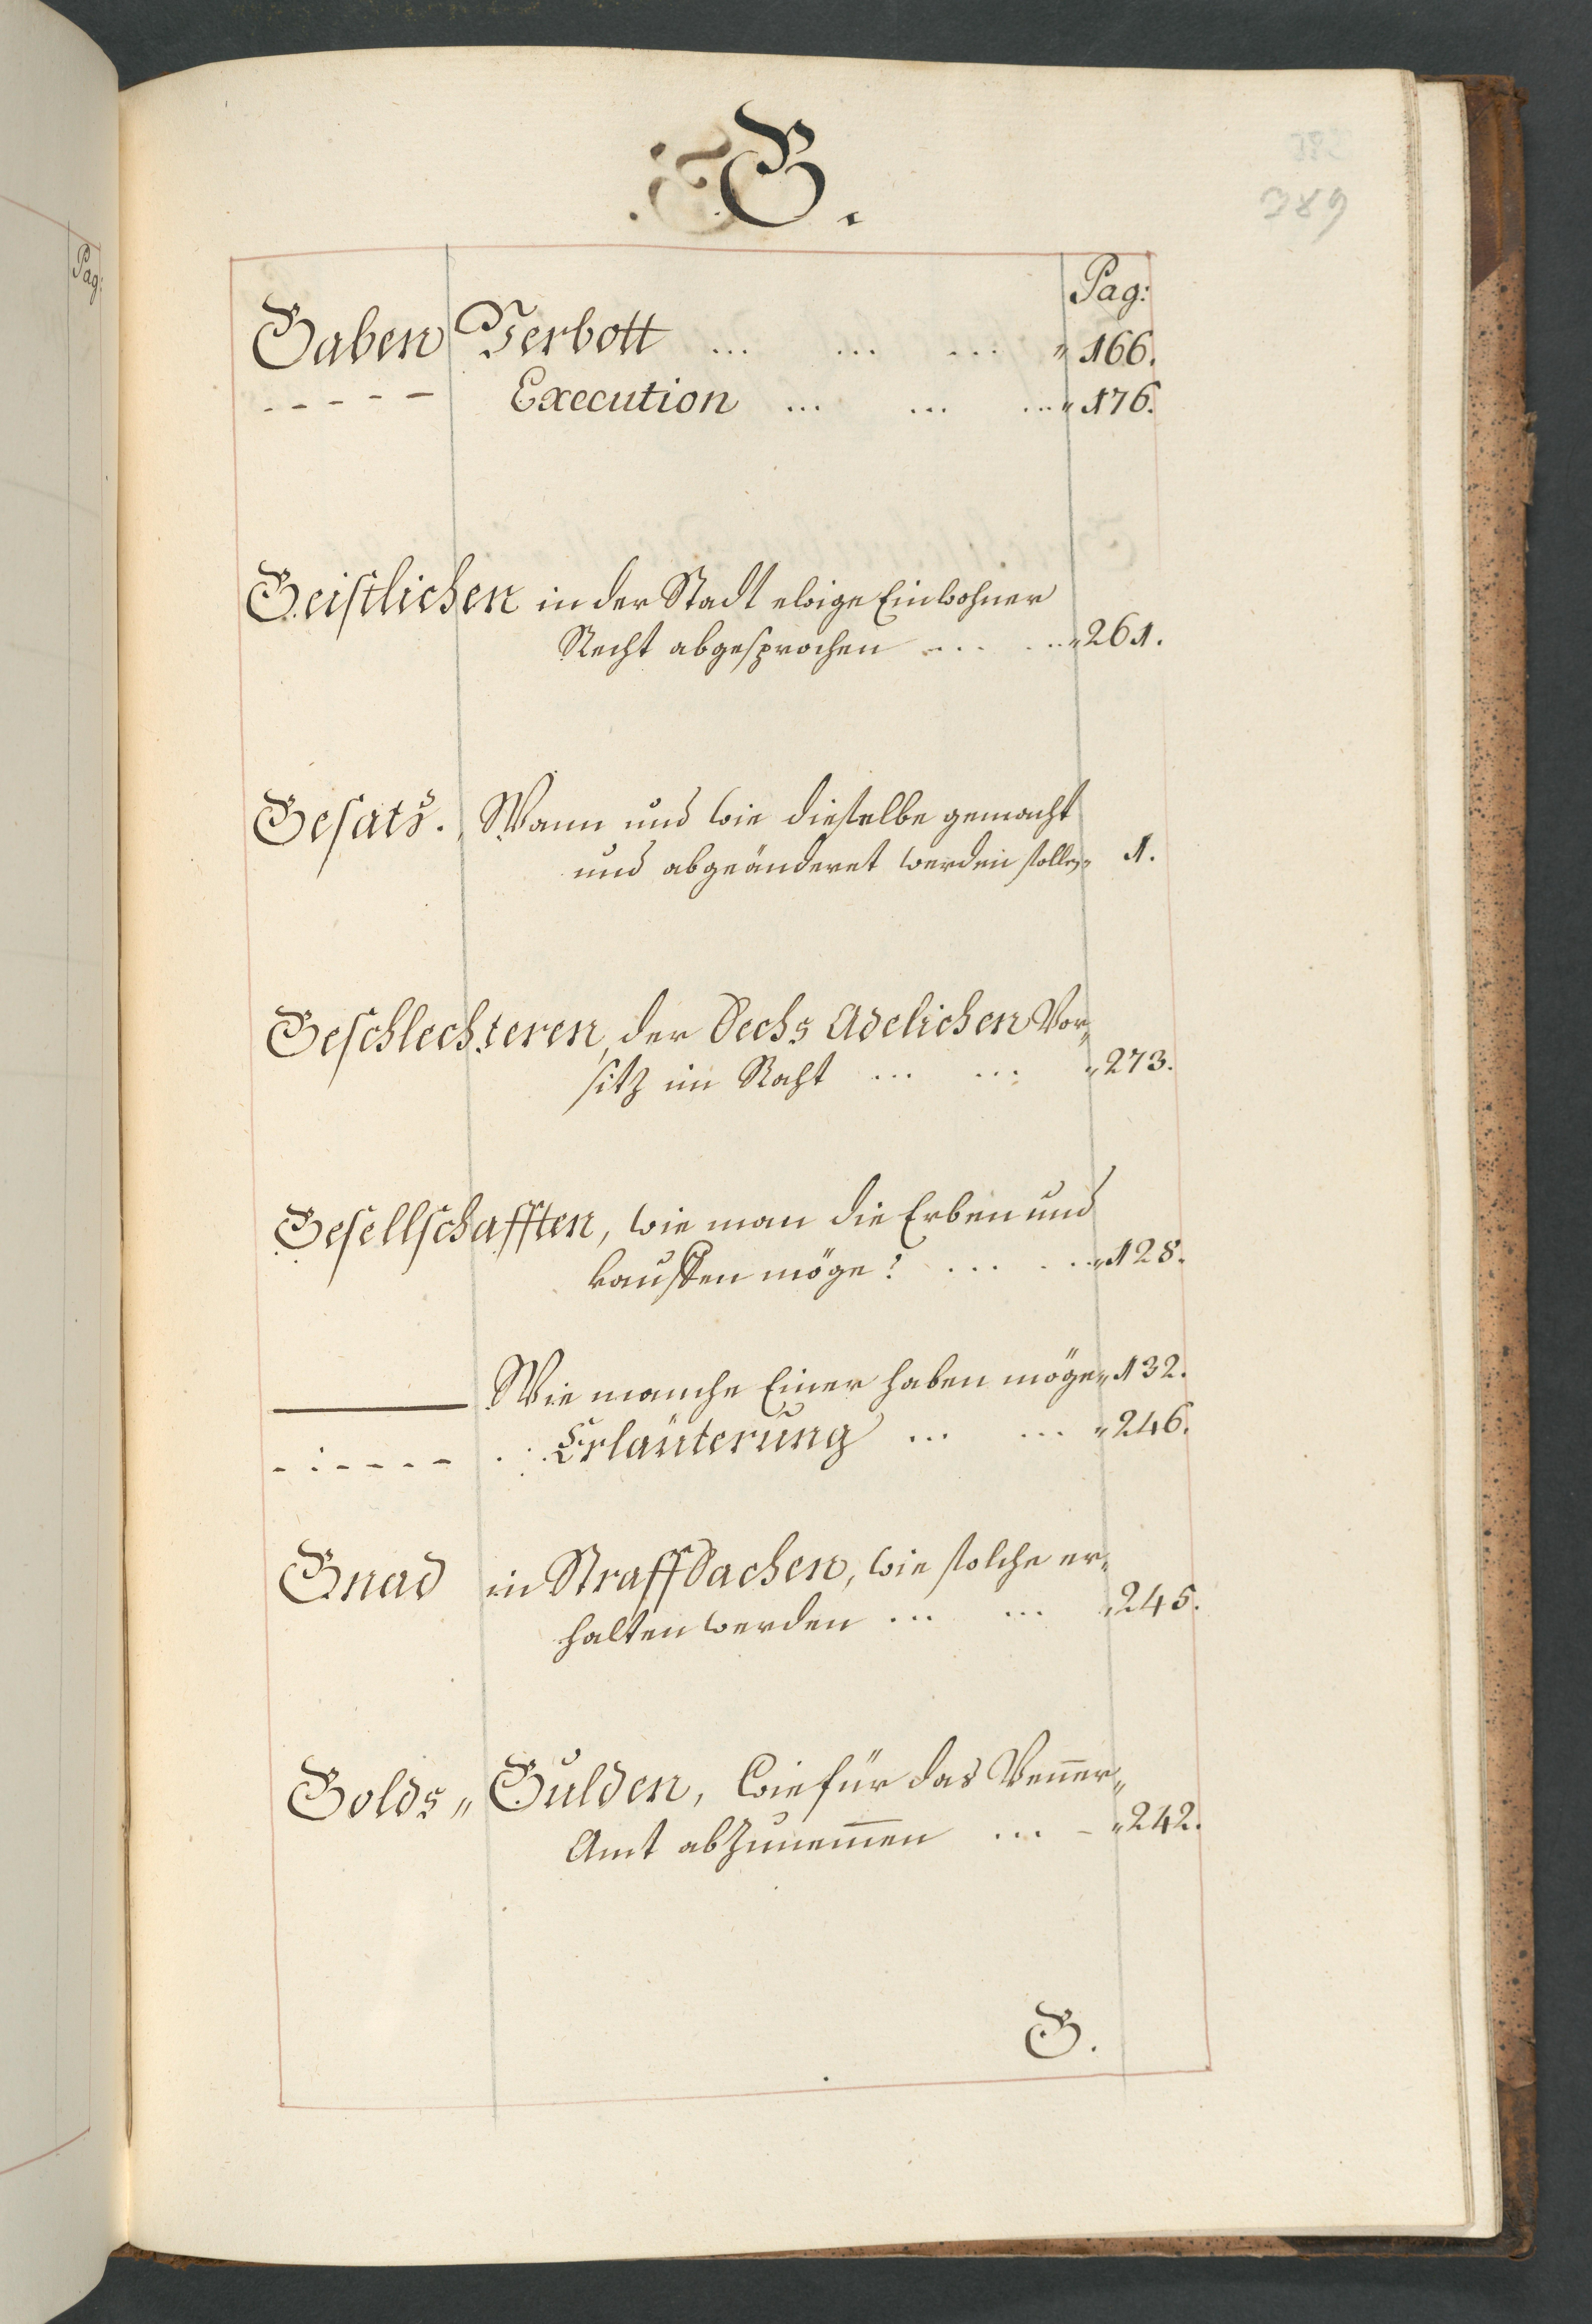 G.
389
Pag:
Pag:
Gaben Verbott ... ... ... " 166.
- - - - - Execution ... ... ... " 176.
Geistlichen in der Stadt ewige Einwohner
Recht abgesprochen ... ... " 261.
Gesatz. Wann und wie dieselbe gemacht
und abgeänderet werden sollen " 1.
Geschlechteren, der Sechs Adelichen Vor„
sitz im Raht ... ... " 273.
Gesellschafften, wie man die Erben und
kauffen möge? ... ... " 128.
——— Wie manche Einer haben möge " 132.
- - - - - - Erläuterung ... ... " 246.
Gnad in Straff Sachen, wie solche er„
halten werden ... ... " 245.
Golds„ Gulden, wie für das Venner„
Amt abzunem̄en ... - " 242.
G.